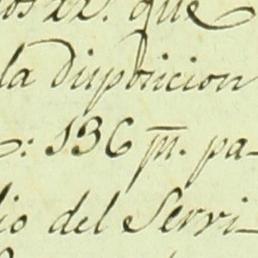 que
la disposicion
136 m. pa-
io del Servi-